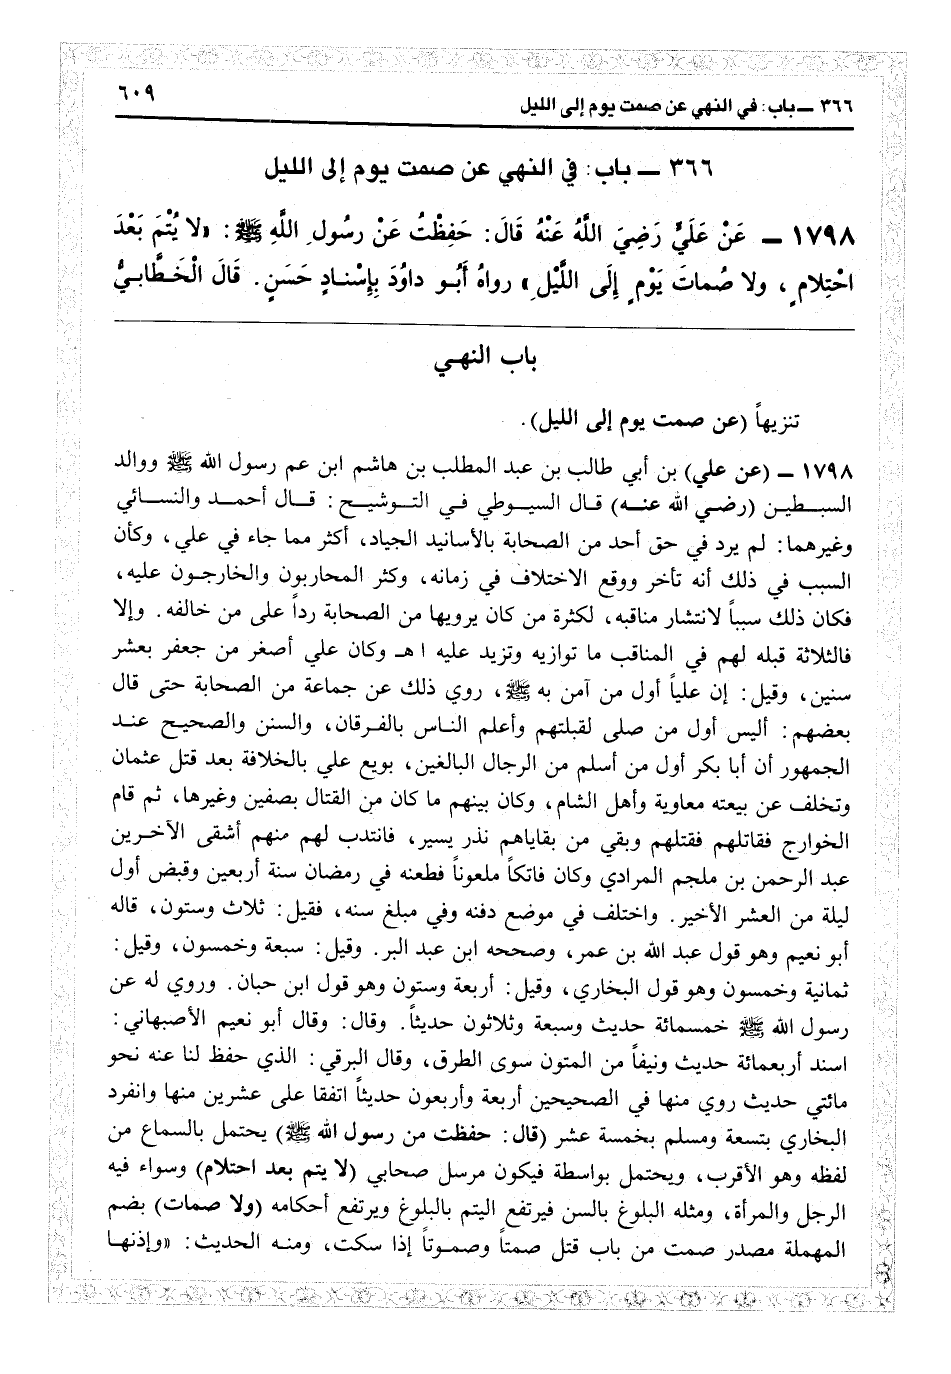 ٣٦٦ ــ باب: في النهي عن صمت يوم إلى الليل
٦٠٩
٣٦٦ ــ باب: في النهي عن صمت يوم إلى الليل
١٧٩٨ ــ عَنْ عَلَيٍّ رَضِيَ اللَّهُ عَنْهُ قَالَ: حَفِظْتُ عَنْ رسُولِ اللَّهِ ﷺ: «لا يُتْمَ بَعْدَ
احْتِلامٍ، ولا صُماتَ يَوْمٍ إِلَى اللَّيْلِ» رواهُ أَبُو داوُدَ بِإِسْنادٍ حَسَنٍ. قَالَ الْخَطَّابيُّ
باب النهي
تنزيهاً (عن صمت يوم إلى الليل).
١٧٩٨ ــ (عن علي) بن أبي طالب بن عبد المطلب بن هاشم ابن عم رسول الله ﷺ ووالد
السبطين (رضي الله عنه) قال السيوطي في التوشيح: قال أحمد والنسائي
وغيرهما: لم يرد في حق أحد من الصحابة بالأسانيد الجياد، أكثر مما جاء في علي، وكأن
السبب في ذلك أنه تأخر ووقع الاختلاف في زمانه، وكثر المحاربون والخارجون عليه،
فكان ذلك سبباً لانتشار مناقبه، لكثرة من كان يرويها من الصحابة رداً على من خالفه. وإلا
فالثلاثة قبله لهم في المناقب ما توازيه وتزيد عليه ا هـ وكان علي أصغر من جعفر بعشر
سنين، وقيل: إن علياً أول من آمن به ﷺ، روي ذلك عن جماعة من الصحابة حتى قال
بعضهم: أليس أول من صلى لقبلتهم وأعلم الناس بالفرقان، والسنن والصحيح عند
الجمهور أن أبا بكر أول من أسلم من الرجال البالغين، بويع علي بالخلافة بعد قتل عثمان
وتخلف عن بيعته معاوية وأهل الشام، وكان بينهم ما كان من القتال بصفين وغيرها، ثم قام
الخوارج فقاتلهم فقتلهم وبقي من بقاياهم نذر يسير، فانتدب لهم منهم أشقى الآخرين
عبد الرحمن بن ملجم المرادي وكان فاتكاً ملعوناً فطعنه في رمضان سنة أربعين وقبض أول
ليلة من العشر الأخير. واختلف في موضع دفنه وفي مبلغ سنه، فقيل: ثلاث وستون، قاله
أبو نعيم وهو قول عبد الله بن عمر، وصححه ابن عبد البر. وقيل: سبعة وخمسون، وقيل:
ثمانية وخمسون وهو قول البخاري، وقيل: أربعة وستون وهو قول ابن حبان. وروي له عن
رسول الله ﷺ خمسمائة حديث وسبعة وثلاثون حديثاً. وقال: وقال أبو نعيم الأصبهاني:
اسند أربعمائة حديث ونيفاً من المتون سوى الطرق، وقال البرقي: الذي حفظ لنا عنه نحو
مائتي حديث روي منها في الصحيحين أربعة وأربعون حديثاً اتفقا على عشرين منها وانفرد
البخاري بتسعة ومسلم بخمسة عشر (قال: حفظت من رسول الله ﷺ) يحتمل بالسماع من
لفظه وهو الأقرب، ويحتمل بواسطة فيكون مرسل صحابي (لا يتم بعد احتلام) وسواء فيه
الرجل والمرأة، ومثله البلوغ بالسن فيرتفع اليتم بالبلوغ ويرتفع أحكامه (ولا صمات) بضم
المهملة مصدر صمت من باب قتل صمتاً وصموتاً إذا سكت، ومنه الحديث: «وإذنها